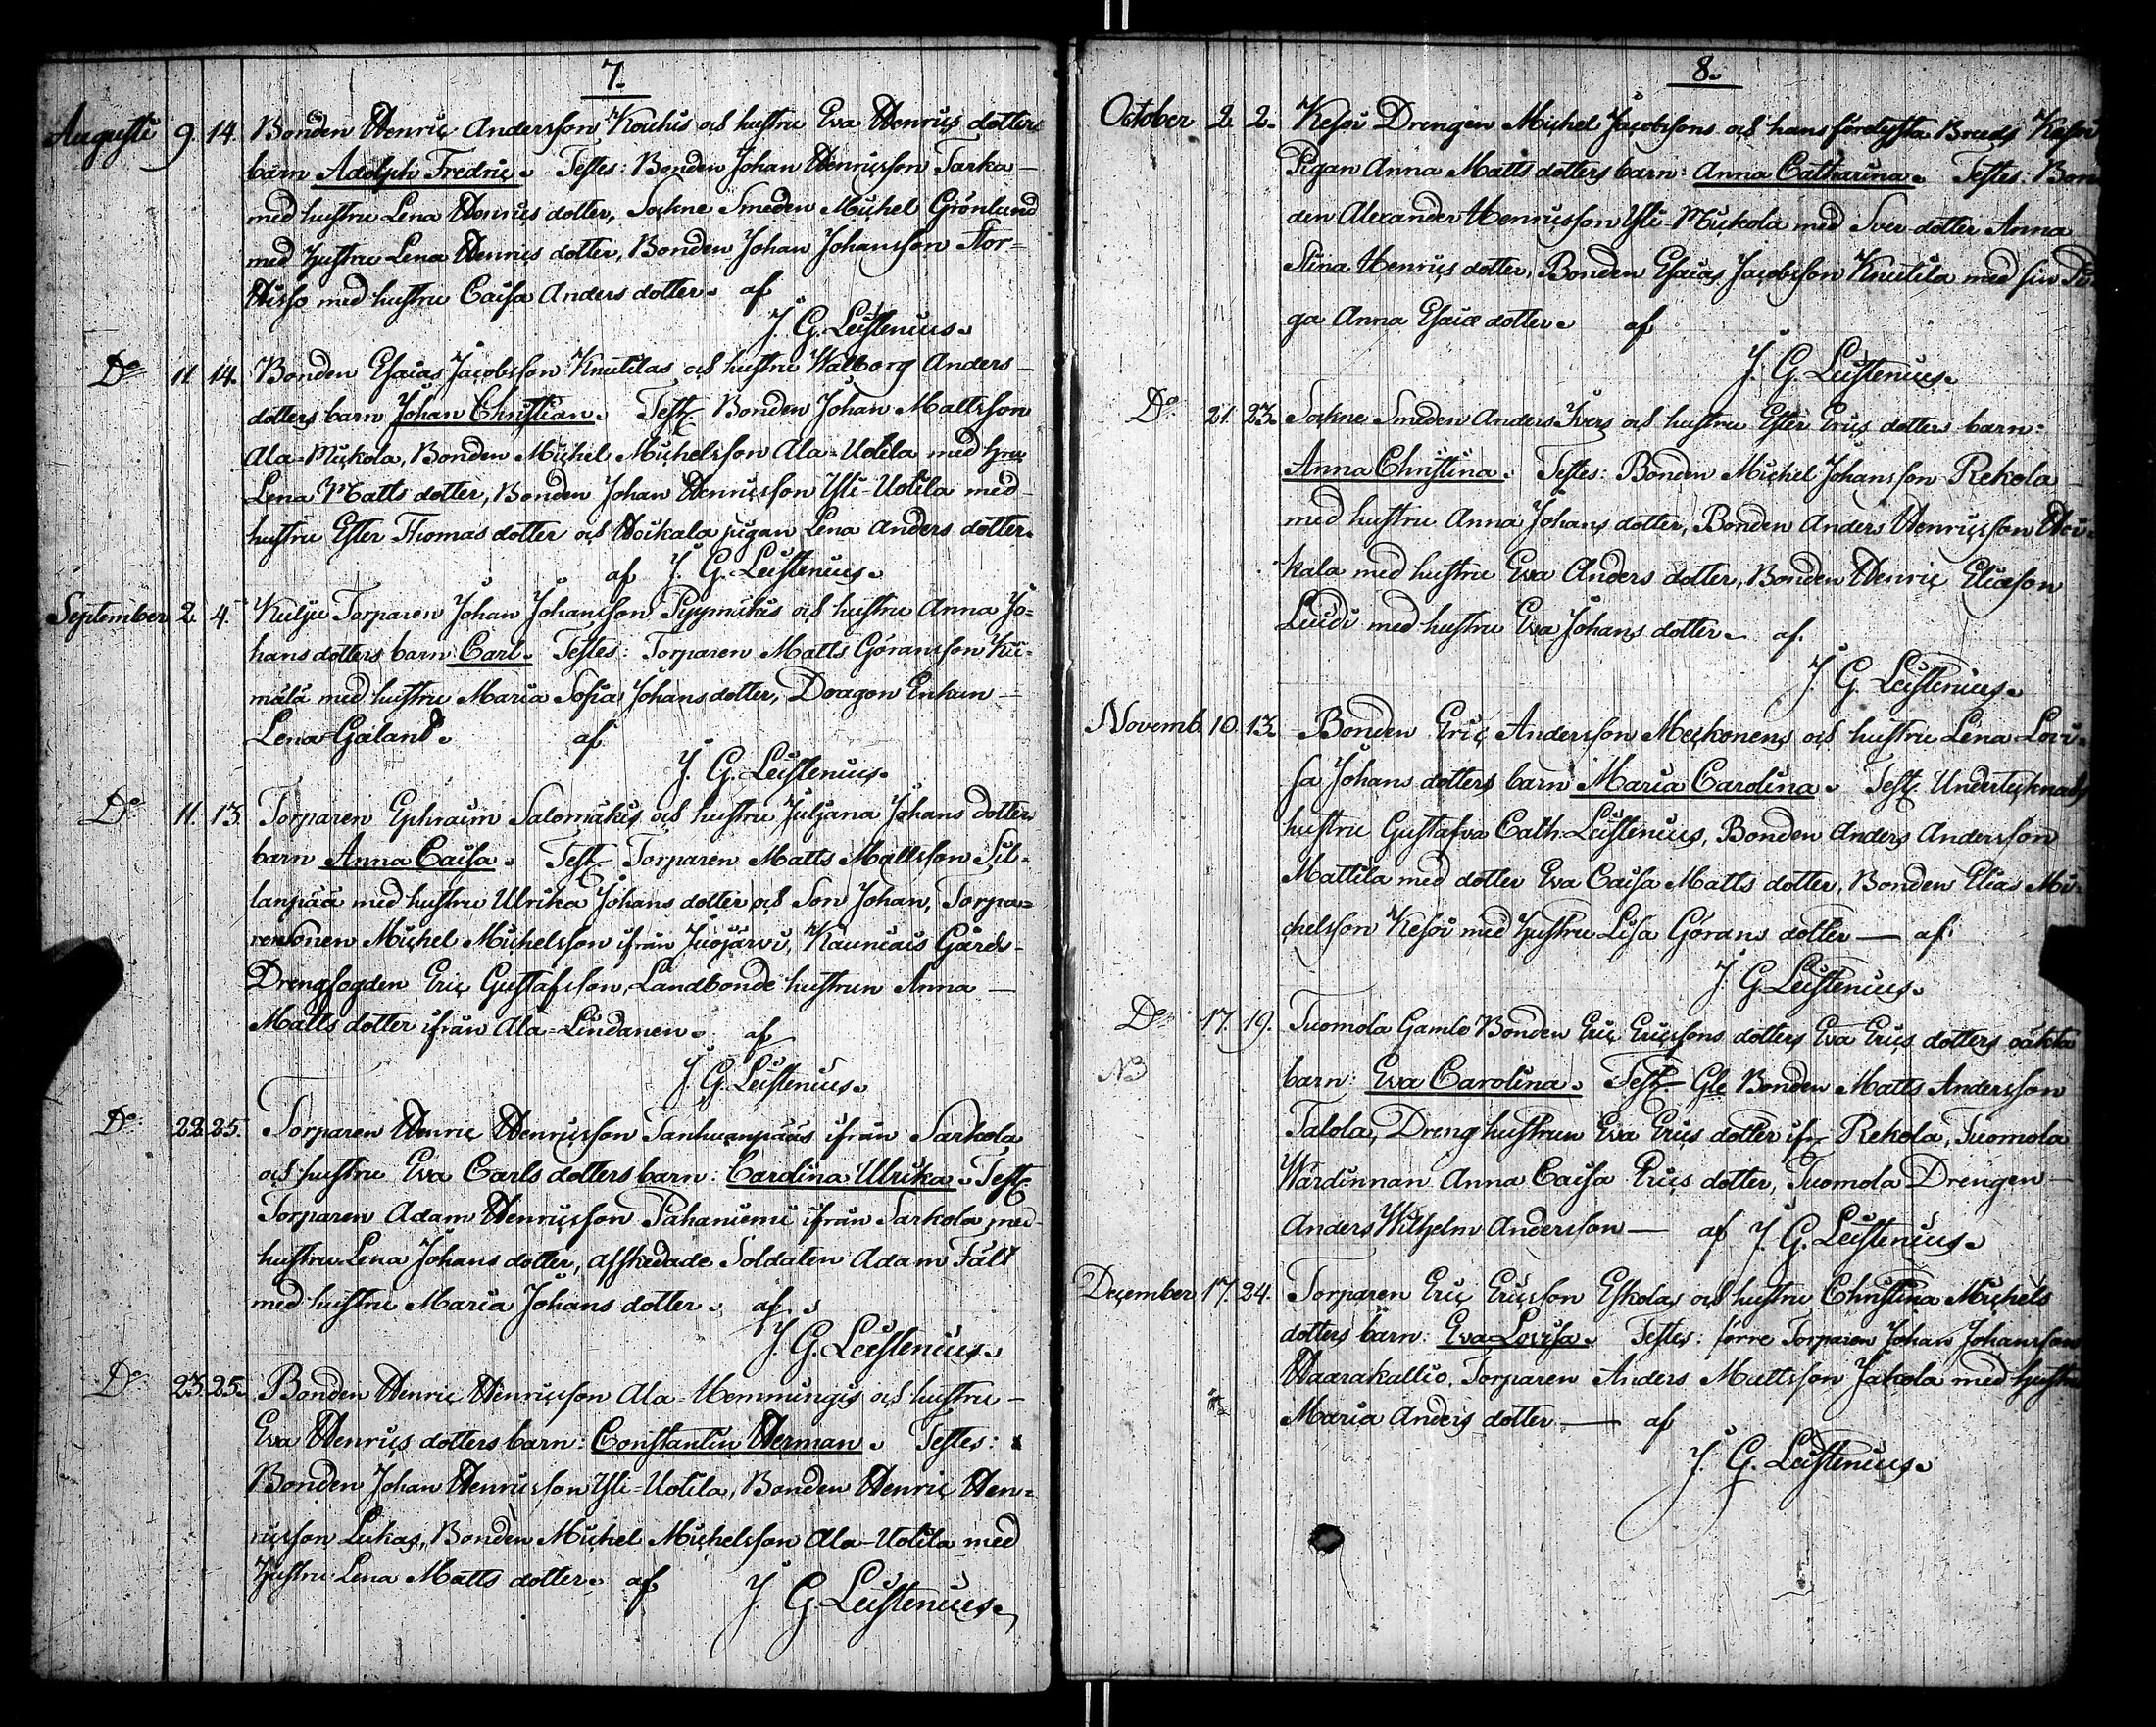 7.
Augusti 9. 14. Bonden Henric Andersson Kouhis och hustru Eva Henrics dotters
barn Adolph Fredric. Testes: Bonden Johan Henricsson Tarka
med hustru Lena Henrics dotter, Sockne Smeden Michel Grönlund
med hustru Lena Henrics dotter, Bonden Johan Johansson Stor-
Hisso med hustru Caisa Anders dotter. af
J. G. Leistenius.
Do 11. 14. Bonden Esaias Jacobsson Knutilas och hustru Walborg Anders
dotters barn Johan Christian. Test. Bonden Johan Mattsson
Ala-Mickola, Bonden Michel Michelsson Ala-Uotila med hru
Lena Matts dotter, Bonden Johan Henricsson Yli-Uotila med
hustru Ester Thomas dotter och Hoikala pigan Lena Anders dotter.
af J. G. Leistenius.
September 2. 4. Kulju Torparen Johan Johansson Pyymäkis och hustru Anna Jo-
hans dotters barn Carl. Testes: Torparen Matts Göransson Kii-
mälä med hustru Maria Sofia Johans dotter, Dragon Enkan
Lena Galand. af
J. G. Leistenius.
Do 11. 13. Torparen Ephraim Salomäkis och hustru Juljana Johans dotters
barn Anna Caisa. Test. Torparen Matts Mattsson Sil-
lanpää med hustru Ulrika Johans dotter och Son Johan, Torpa-
resonen Michel Michelsson ifrån Juojärvi, Kauniais Gårds-
Drengfogden Eric Gustafsson, Landbonde hustrun Anna
Matts dotter ifrån Ala-Lindanen. af
J. G. Leistenius.
Do 22. 25. Torparen Henric Henricsson Tanhuanpääs ifrån Sarkola
och hustru Eva Carls dotters barn: Carolina Ulrika. Test.
Torparen Adam Henricsson Pahaniemi ifrån Sarkola med
hustru Lena Johans dotter, afskedade Soldaten Adam Fält
med hustru Maria Johans dotter. af
J. G. Leistenius.
Do 23. 25. Bonden Henric Henricsson Ala-Hemmingis och hustru
Eva Henrics dotters barn: Constantin Herman. Testes:
Bonden Johan Henricsson Yli-Uotila, Bonden Henric Hen-
ricsson Lukas, Bonden Michel Michelsson Ala-Uotila med
hustru Lena Matts dotter. af J. G. Leistenius.
8.
October 2. 2. Kesoi Drengen Michel Jacobssons och hans förelysta Bruds Kesoi
Pigan Anna Matts dotters barn: Anna Catharina. Testes: Bon-
den Alexander Henricsson Yli-Mickola med Sver dotter Anna
Stina Henrics dotter, Bonden Esaias Jacobsson Knutila med sin Pi-
ga Anna Esaiæ dotter. af
J. G. Leistenius.
Do 21. 23. Sockne Smeden Anders Ivers och hustru Ester Erics dotters barn:
Anna Christina. Testes: Bonden Michel Johansson Rekola
med hustru Anna Johans dotter, Bonden Anders Henricsson Hoi-
kala med hustru Eva Anders dotter, Bonden Henric Eliæson
Luidi med hustru Eva Johans dotter. af
J. G. Leistenius.
Novemb. 10. 13. Bonden Eric Andersson Meckonens och hustru Lena Lovi-
sa Johans dotters barn Maria Carolina. Test. Undertecknads
hustru Gustafva Cath. Leistenius, Bonden Anders Andersson
Mattila med dotter Eva Caisa Matts dotter, Bonden Elias Mi-
chelsson Kesoi med hustru Lisa Görans dotter — af
J. G. Leistenius.
Do 17. 19. Tuomola Gamle Bonden Eric Ericssons dotters Eva Erics dotters oäkta
NB
barn: Eva Carolina. Test. Gle Bonden Matts Andersson
Talola, Dreng hustrun Eva Erics dotter ifr Rekola, Tuomola
Wärdinnan Anna Caisa Erics dotter, Tuomola Drengen
Anders Wilhelm Andersson — af J. G. Leistenius.
December 17. 24. Torparen Eric Ericsson Eskolas och hustru Christina Michels
dotters barn: Eva Lovisa. Testes: förre Torparen Johan Johansson
Haarakallio, Torparen Anders Mattsson Jakola med hustru
Maria Anders dotter — af
J. G. Leistenius.